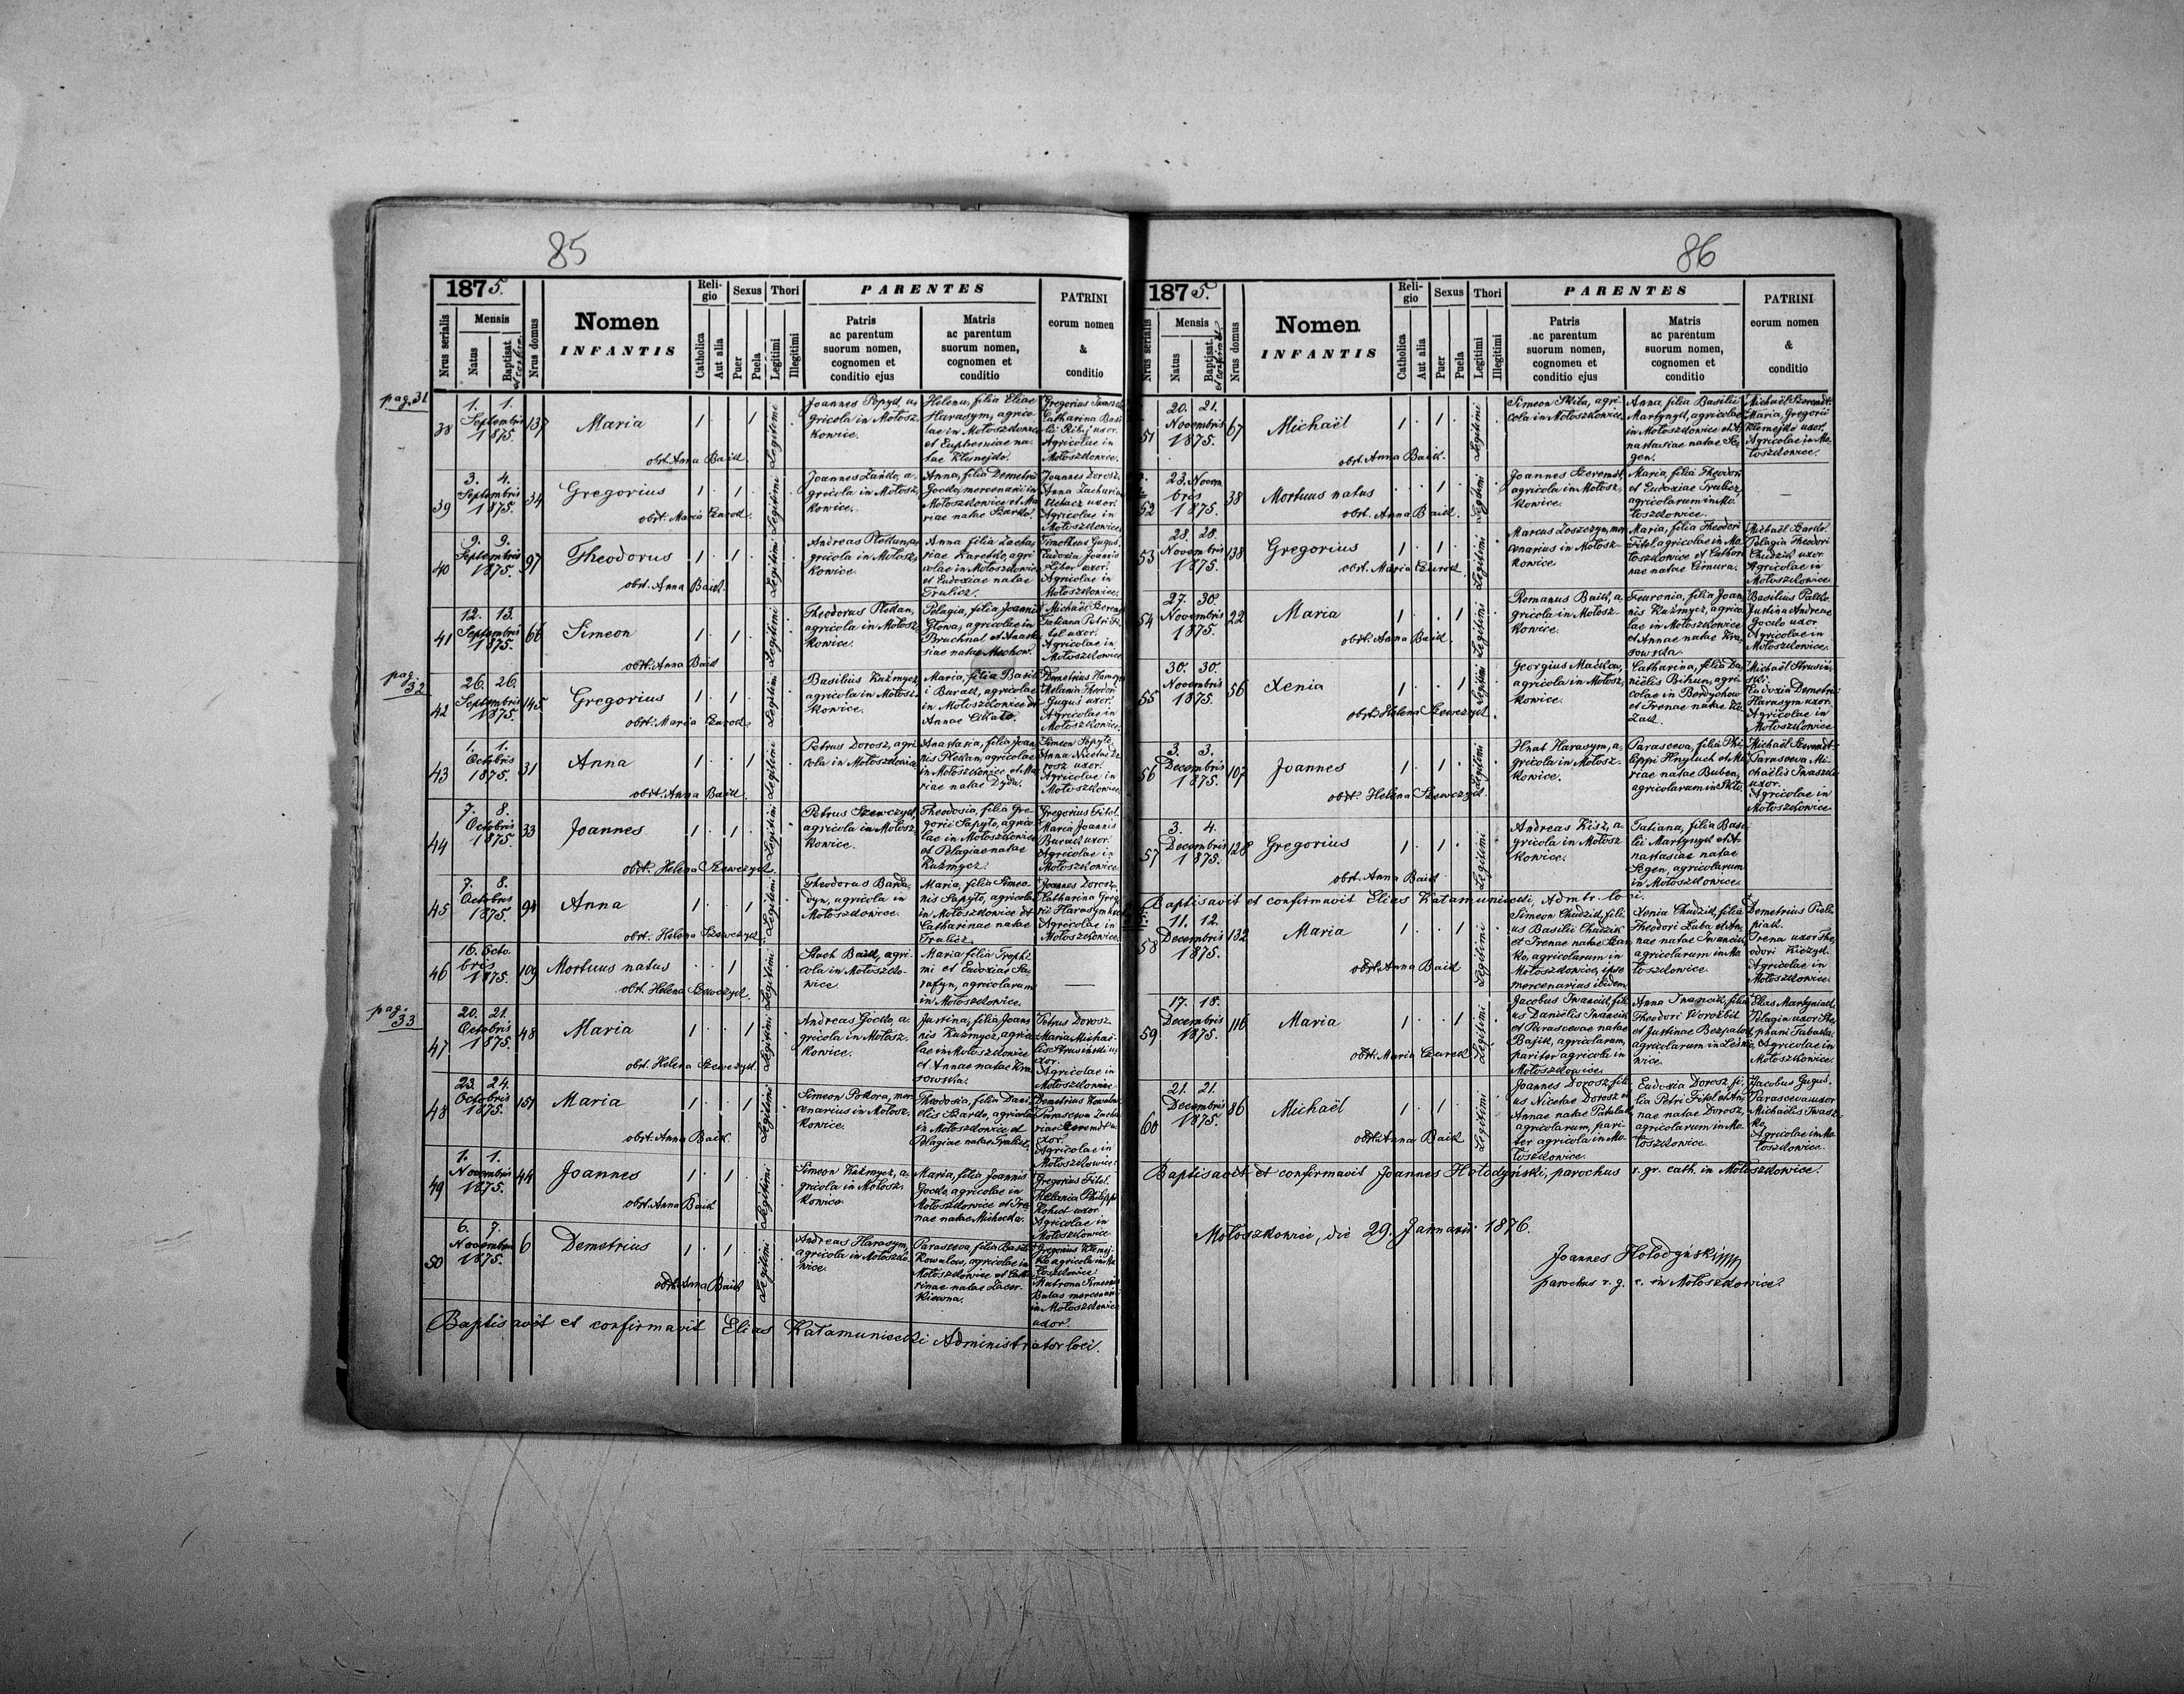 85
1875.
Nrus serialis
Mensis
Natus
Baptisat. et confir.
Nrus domus
Nomen
INFANTIS
Reli-
gio
Catholica
Aut alia
Sexus
Puer
Puela
Thori
Legitimi
Illegitimi
PARENTES
Patris
ac parentum
suorum nomen,
cognomen et
conditio ejus
Matris
ac parentum
suorum nomen,
cognomen et
conditio
PATRINI
eorum nomen
&
conditio
pag. 31
38
1. 1.
Septembris
1875.
137
Maria
obst. Anna Baik.
Legitimi
Joannes Sopyt, a-
gricola in Mołosz-
kowice.
Helena, filia Eliae
Harasym, agrico-
lae in Mołoszkowice
et Euphemiae na-
tae Klimejko.
Agricolae in
Mołoszkowice.
39
3. 4.
Septembris
1875.
34
Gregorius
obst. Maria Czurok.
Legitimi
Joannes Zańko, a-
gricola in Mołosz-
kowice.
Anna, filia Demetrii
Gocko, mercenarii in
Mołoszkowice et Ma-
riae natae Szarko.
Joannes Dorosz.
Anna Zachariae
Agricolae in
Mołoszkowice.
40
9. 9.
Septembris
1875.
97
Theodorus
obst. Anna Baik.
Legitimi
Andreas Plekan, a-
gricola in Mołosz-
kowice.
Anna filia Zacha-
riae Karetko, agri-
colae in Mołoszkowice
et Eudoxiae natae
Trulicz.
Timotheus Gugus.
Eudoxia Joannis
Agricolae in
Mołoszkowice.
41
12. 13.
Septembris
1875.
66
Simeon
obst. Anna Baik
Legitimi
Theodorus Plekan,
agricola in Mołosz-
kowice.
Pelagia, filia Joannis
Głowa, agricolae in
Bruchnal et Anasta-
siae natae Mochow.
Tatiana Petri Fi-
tel uxor.
Agricolae in
Mołoszkowice
pag.
32
42
26. 26.
Septembris
1875.
145.
Gregorius
obst. Maria Czurok.
Legitimi
Basilius Kuźmycz,
agricola in Mołosz-
kowice.
Maria, filia Basil-
i Burak, agricolae
in Mołoszkowice et
Annae Cikało.
Demetrius Harasym
Melania Theodori
Gugus uxor.
Agricolae in
Mołoszkowice.
43
1. 1.
Octobris
1875.
31
Anna
obst. Anna Baik.
Legitimi
Petrus Dorosz, agri-
cola in Mołoszkowice
Anastasia, filia Joan-
nis Plekan, agricolae
in Mołoszkowice et Ma-
riae natae Dyda.
Simeon Sopyło.
Anna Nicetae Do-
rosz uxor.
Agricolae in
Mołoszkowice
44
7. 8.
Octobris
1875.
33
Joannes
obst. Helena Szewczyk.
Legitimi
Petrus Szewczyk,
agricola in Mołosz-
kowice.
Theodosia, filia Gre-
gorii Sapyło, agrico-
lae in Mołoszkowice
et Pelagiae natae
Kuźmycz.
Gregorius Fitel.
Maria Joannis
Burak uxor.
Agricolae in
Mołoszkowice.
45
7. 8.
Octobris
1875.
91
Anna
obst. Helena Szewczyk.
Legitimi
Theodorus Banda-
dyn, agricola in
Mołoszkowice.
Maria, filia Simeo-
nis Sapyło, agricolae
in Mołoszkowice et
Catharinae natae
Trulicz.
Joannes Dorosz.
Catharina Grego-
rii Harasym uxor
Agricolae in
Mołoszkowice
46
16. Octo-
bris
1875.
109
Mortuus natus
obst. Helena Szewczyk.
Legitimi
Stach Baik, agri-
cola in Mołoszko-
wice.
Maria filia Trophi-
mi et Eudoxiae Se-
rafyn, agricolarum
in Mołoszkowice.
pag.
33
47
20. 21.
Octobris
1875.
48
Maria
obst. Helena Szewczyk.
Legitimi
Andreas Gocko, a-
gricola in Mołosz-
kowice.
Justina, filia Joan-
nis Kuźmycz, agrico-
lae in Mołoszkowice
et Annae natae Kra-
sowska.
Petrus Dorosz.
Maria Michaë-
lis Strusinski u-
xor.
Agricolae in
Mołoszkowice
48
23. 24.
Octobris
1875.
151
Maria
obst. Anna Baik.
Legitimi
Simeon Pokora, mer-
cenarius in Mołosz-
kowice.
Theodosia, filia Dani-
elis Szarko, agricolae
in Mołoszkowice et
Pelagiae natae Trulicz.
Demetrius Kowalow
Parascewa Zacha-
riae Szeremet u-
xor.
Agricolae in
Mołoszkowice.
49
1. 1.
Novembris
1875.
44
Joannes
obst. Anna Baik
Legitimi
Simeon Kuźmycz, a-
gricola in Mołosz-
kowice.
Maria, filia Joannis
Gocko, agricolae in
Mołoszkowice et Ire-
nae natae Michocka.
Gregorius Fitel.
Melania Philippi
Kohut uxor.
Agricolae in
Mołoszkowice
50
6. 7.
Novembris
1875.
6
Demetrius
obst. Anna Baik
Legitimi
Andreas Harasym,
agricola in Mołoszko-
wice.
Parasceva, filia Basilii
Kowalow, agricolae in
Mołoszkowice et Catha-
rinae natae Zacer-
kiewna.
Gregorius Klimej-
ko agricola in Mo-
łoszkowice.
Matrona Simeonis
Bulas mercenarii
in Mołoszkowice
uxor.
Baptisavit et confirmavit Elias Kałamuniecki Administrator loci.
86
1875.
Nrus serialis
Mensis
Natus
Baptisat. et confirmat.
Nrus domus
Nomen
INFANTIS
Reli-
gio
Catholica
Aut alia
Sexus
Puer
Puela
Thori
Legitimi
Illegitimi
PARENTES
Patris
ac parentum
suorum nomen,
cognomen et
conditio ejus
Matris
ac parentum
suorum nomen,
cognomen et
conditio
PATRINI
eorum nomen
&
conditio
51
20. 21.
Novembris
1875.
67
Michaël
obst. Anna Baik.
Legitimi
Simeon Skiba, agri-
cola in Mołoszkowice.
Anna, filia Basilii
Martynyk, agricolae
in Mołoszkowice et A-
nastasiae natae Se-
gen.
Michaël Szeremet.
Maria, Gregorii
Klimejko uxor.
Agricolae in Mo-
łoszkowice.
52
23. Novem-
bris
1875.
38
Mortuus natus
obst. Anna Baik.
Legitimi
Joannes Szeremet,
agricola in Mołosz-
kowice.
Maria, filia Theodori
et Eudoxiae Trulicz,
agricolarum in Mo-
łoszkowice.
53
28. 28.
Novembris
1875.
138
Gregorius
obst. Maria Czurok.
Legitimi
Marcus Łoszczyn, mer-
cenarius in Mołosz-
kowice.
Maria, filia Theodori
Fitel agricolae in Mo-
łoszkowice et Cathari-
nae natae Cimura.
Michaël Szarko.
Pelagia Theodori
Chudzik uxor.
Agricolae in
Mołoszkowice.
54
27. 30.
Novembris
1875.
22
Maria
obst. Anna Baik.
Legitimi
Romanus Baik, a-
gricola in Mołosz-
kowice.
Fewronia, filia Joan-
nis Kuźmycz, agrico-
lae in Mołoszkowice
et Annae natae Kra-
sowska.
Basilius Palko.
Justina Andreae
Gocko uxor.
Agricolae in
Mołoszkowice.
55
30. 30.
Novembris
1875.
56
Xenia
obst. Helena Szewczyk.
Legitimi
Georgius Maćkow,
agricola in Mołosz-
kowice.
Catharina, filia Da-
nielis Bihun, agri-
colae in Berdychow
et Irenae natae Ko-
zak.
Michaël Strusin-
ski.
Eudoxia Demetrii
Harasym uxor.
Agricolae in
Mołoszkowice
56
3. 3.
Decembris
1875.
107
Joannes
obst. Helena Szewczyk.
Legitimi
Hnat Harasym, a-
gricola in Mołosz-
kowice.
Parasceva, filia Phi-
lippi Hnyluch et Ma-
riae natae Buben,
agricolarum in Skło.
Michaël Szeremet.
Parascewa Mi-
chaëlis Iwaszko
uxor.
Agricolae in
Mołoszkowice
57
3. 4.
Decembris
1875.
128
Gregorius
obst. Anna Baik
Legitimi
Andreas Kisz, a-
gricola in Mołosz-
kowice.
Tatiana, filia Basi-
lii Martynyk et A-
nastasiae natae
Segen, agricolarum
in Mołoszkowice.
Baptisavit et confirmavit Elias Kałamuniecki, Admtr. loci.
58
11. 12.
Decembris
1875.
132
Maria
obst. Anna Baik
Legitimi
Simeon Chudzik, fili-
us Basilii Chudzik
et Irenae natae Szar-
ko, agricolarum in
Mołoszkowice, ipse
mercenarius ibidem.
Xenia Chudzik, filia
Theodori Zuba et An-
nae natae Iwancik,
agricolarum in Mo-
łoszkowice.
Demetrius Piele-
piak.
Irena uxor The-
odori Kiczyk.
Agricolae in
Mołoszkowice.
59
17. 18.
Decembris
1875.
116
Maria
obst. Maria Czurok
Legitimi
Jacobus Iwancik, fili-
us Danielis Iwancik
et Parascevae natae
Bajik, agricolarum,
pariter agricola in
Mołoszkowice.
Anna Iwancik, filia
Theodori Worożbit
et Justinae Bezpalok,
agricolarum in Leśnio-
wice.
Elias Martyniak.
Pelagia uxor Ste-
phani Tabaka.
Agricolae in
Mołoszkowice.
60
21. 21.
Decembris
1875.
86
Michaël
obst. Anna Baik
Legitimi
Joannes Dorosz, fili-
us Nicetae Dorosz et
Annae natae Patałak
agricolarum, pari-
ter agricola in Mo-
łoszkowice.
Eudoxia Dorosz, fi-
lia Petri Fitel et An-
nae natae Dorosz,
agricolarum in Mo-
łoszkowice.
Jacobus Gugus.
Parasceva uxor
Michaëlis Iwasz-
ko.
Agricolae in Mo-
łoszkowice.
Baptisavit et confirmavit Joannes Hołodyński, parochus r. gr. cath. in Mołoszkowice.
Mołoszkowice, die 29. Januarii 1876.
Joannes Hołodyński
parochus r. g. c. in Mołoszkowice.